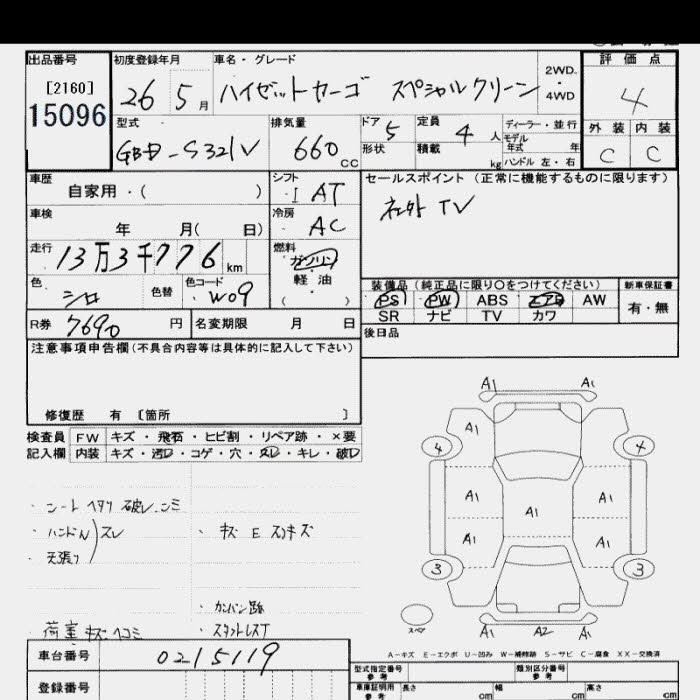 出品番号 初度登録年月 車名・グレード 2WD・4WD 評価点
[2160]
15096 26 5月 ハイゼットカーゴ スペシャルクリーン 4
型式 排気量 ドア 5 定員 4人 ディーラー・並行 外装 内装
GBD-S321V 660cc 形状 積載 kg モデル年式 年 ハンドル 左・右 C C
車歴 自家用・( ) シフト I AT セールスポイント(正常に機能するものに限ります)
車検 年 月( 日) 冷房 AC 社外 TV
走行 13万3千776km 燃料 ガソリン
軽油
( )
色 シロ 色替 色コード W09 装備品(純正品に限り○をつけてください) 新車保証書
PS PW ABS エアB AW 有・無
SR ナビ TV カワ
R券 7690円 名変期限 月 日 後日品
注意事項申告欄(不具合内容等は具体的に記入して下さい)
修復歴 有 〔箇所 〕
検査員 FW キズ・飛石・ヒビ割・リペア跡・×要
記入欄 内装 キズ・汚レ・コゲ・穴・スレ・キレ・破レ
・シートヘタリ 破レ シミ
・ハンドル スレ ・キズ E スリキズ
・天張り
・カンバン跡
荷室 キズ ヘコミ ・スタッドレスT
A1 A1
A1
4 4
A1 A1 A1
A1 A1
3 3
スペア A1 A2 A1
A-キズ E-エクボ U-凹み W-補修跡 S-サビ C-腐食 XX-交換済
車台番号 0215119 型式指定番号 参考 類別区分番号 参考
登録番号 車庫証明用 参考 長さ cm 幅 cm 高さ cm